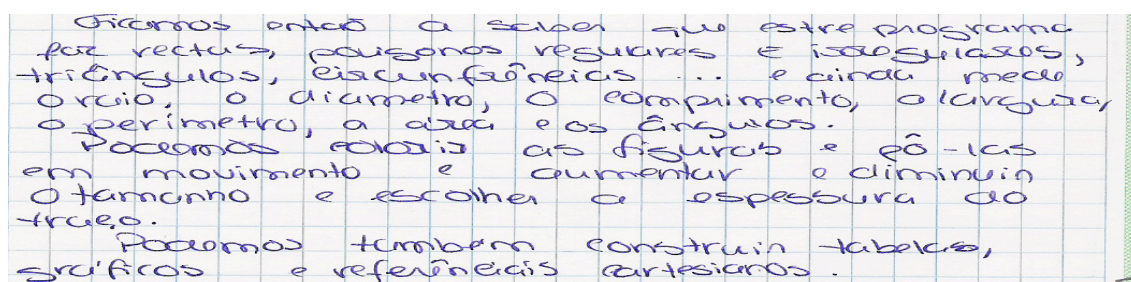 Ficamos então a saber que estre programa
faz rectas, poligonos regulares e irregulares,
triângulos, circunferências ... e ainda mede
o raio, o diametro, o comprimento, a largura,
o perímetro, a área e os ângulos.
Podemos colorir as figuras e pô-las
em movimento e aumentar e diminuir
o tamanho e escolher a espessura do
traço.
Podemos também construir tabelas,
gráficos e referênciais cartesianos.